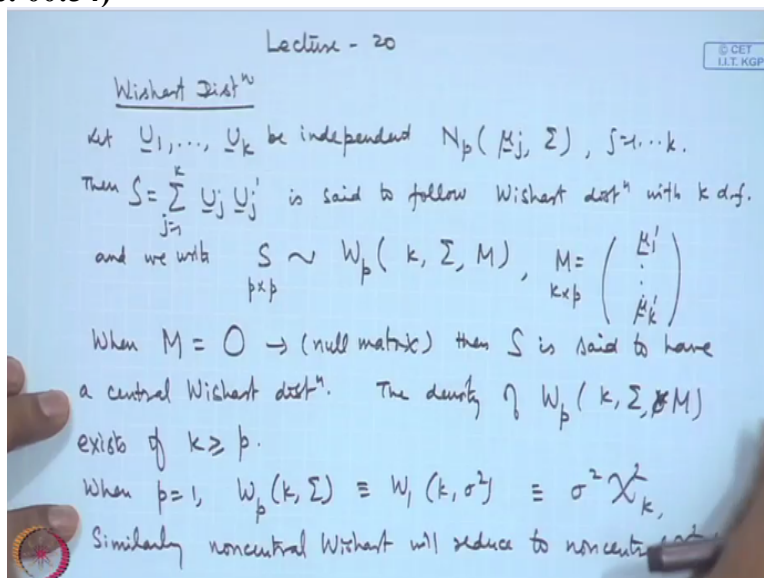 Lecture - 20
© CET
I.I.T. KGP
Wishart Distⁿ
Let U̲₁, ..., U̲ₖ be independent Nₚ( μ̲ⱼ, Σ), j=1...k.
Then S = Σⱼ₌₁ᵏ U̲ⱼ U̲ⱼ' is said to follow Wishart distⁿ with k d.f.
and we write S ~ Wₚ ( k, Σ, M), M = ( μ̲₁' ⋮ μ̲ₖ' )
p×p k×p
When M = O → (null matrix) then S is said to have
a central Wishart distⁿ. The density of Wₚ ( k, Σ, M)
exists if k ≥ p.
When p=1, Wₚ(k, Σ) ≡ W₁ (k, σ²) ≡ σ² χ²ₖ,
Similarly noncentral Wishart will reduce to